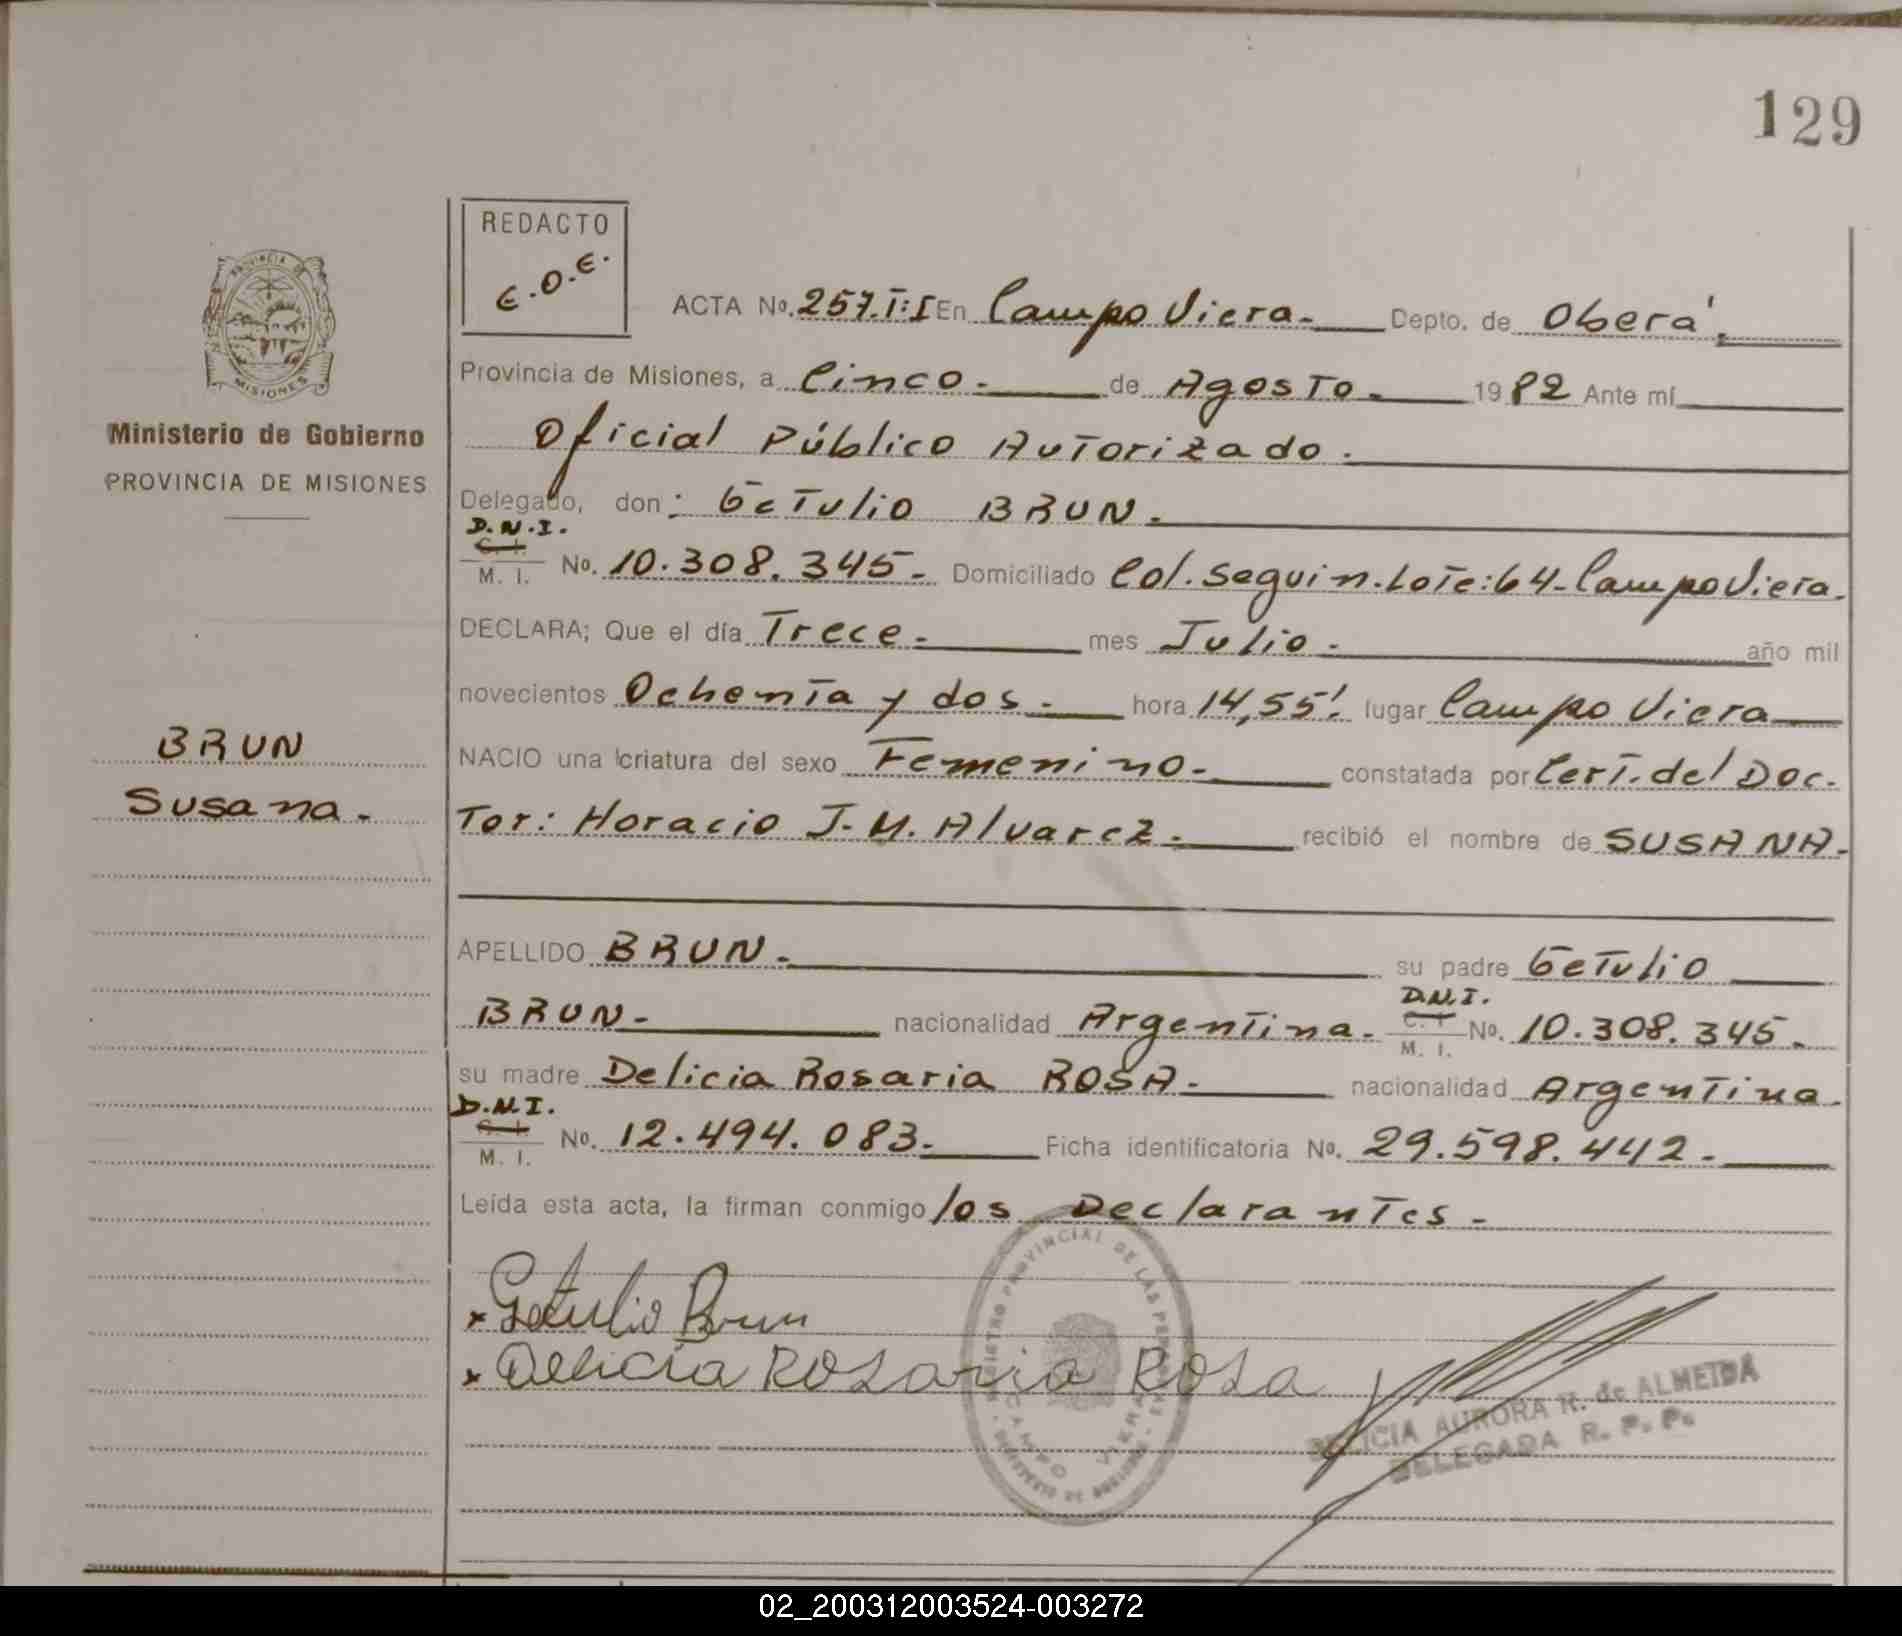 129
REDACTO
E.O.E.
PROVINCIA DE
MISIONES
Ministerio de Gobierno
PROVINCIA DE MISIONES
BRUN
Susana.-
ACTA No. 257.T:I En Campo Viera.- Depto. de Oberá.
Provincia de Misiones, a Cinco.- de Agosto.- 1982 Ante mí
Oficial Público Autorizado.
Delegado, don: Getulio BRUN.
D.N.I.
C. I.
M. I. No. 10.308.345.- Domiciliado Col. Seguin. Lote: 64-Campo Viera.
DECLARA; Que el día Trece.- mes Julio.- año mil
novecientos Ochenta y dos.- hora 14,55'. lugar Campo Viera
NACIO una criatura del sexo Femenino.- constatada por Cert. del Doc.
Tor: Horacio J. M. Alvarez.- recibió el nombre de SUSANA.-
APELLIDO BRUN.- su padre Getulio
BRUN.- nacionalidad Argentina.- D.N.I. C. I. M. I. No. 10.308.345.-
su madre Delicia Rosaria ROSA.- nacionalidad Argentina.
D.N.I.
C. I.
M. I. No. 12.494.083.- Ficha identificatoria No. 29.598.442.-
Leída esta acta, la firman conmigo los Declarantes.-
x Getulio Brun
x Delicia Rosaria Rosa
REGISTRO PROVINCIAL DE LAS PERSONAS
CAMPO VIERA
AURORA R. de ALMEIDA
DELEGADA R. P. P.
02_200312003524-003272